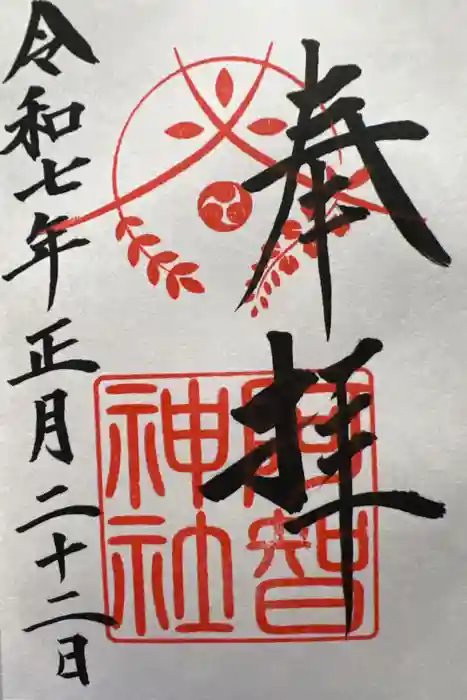 奉拝
阿智神社
令和七年正月二十二日